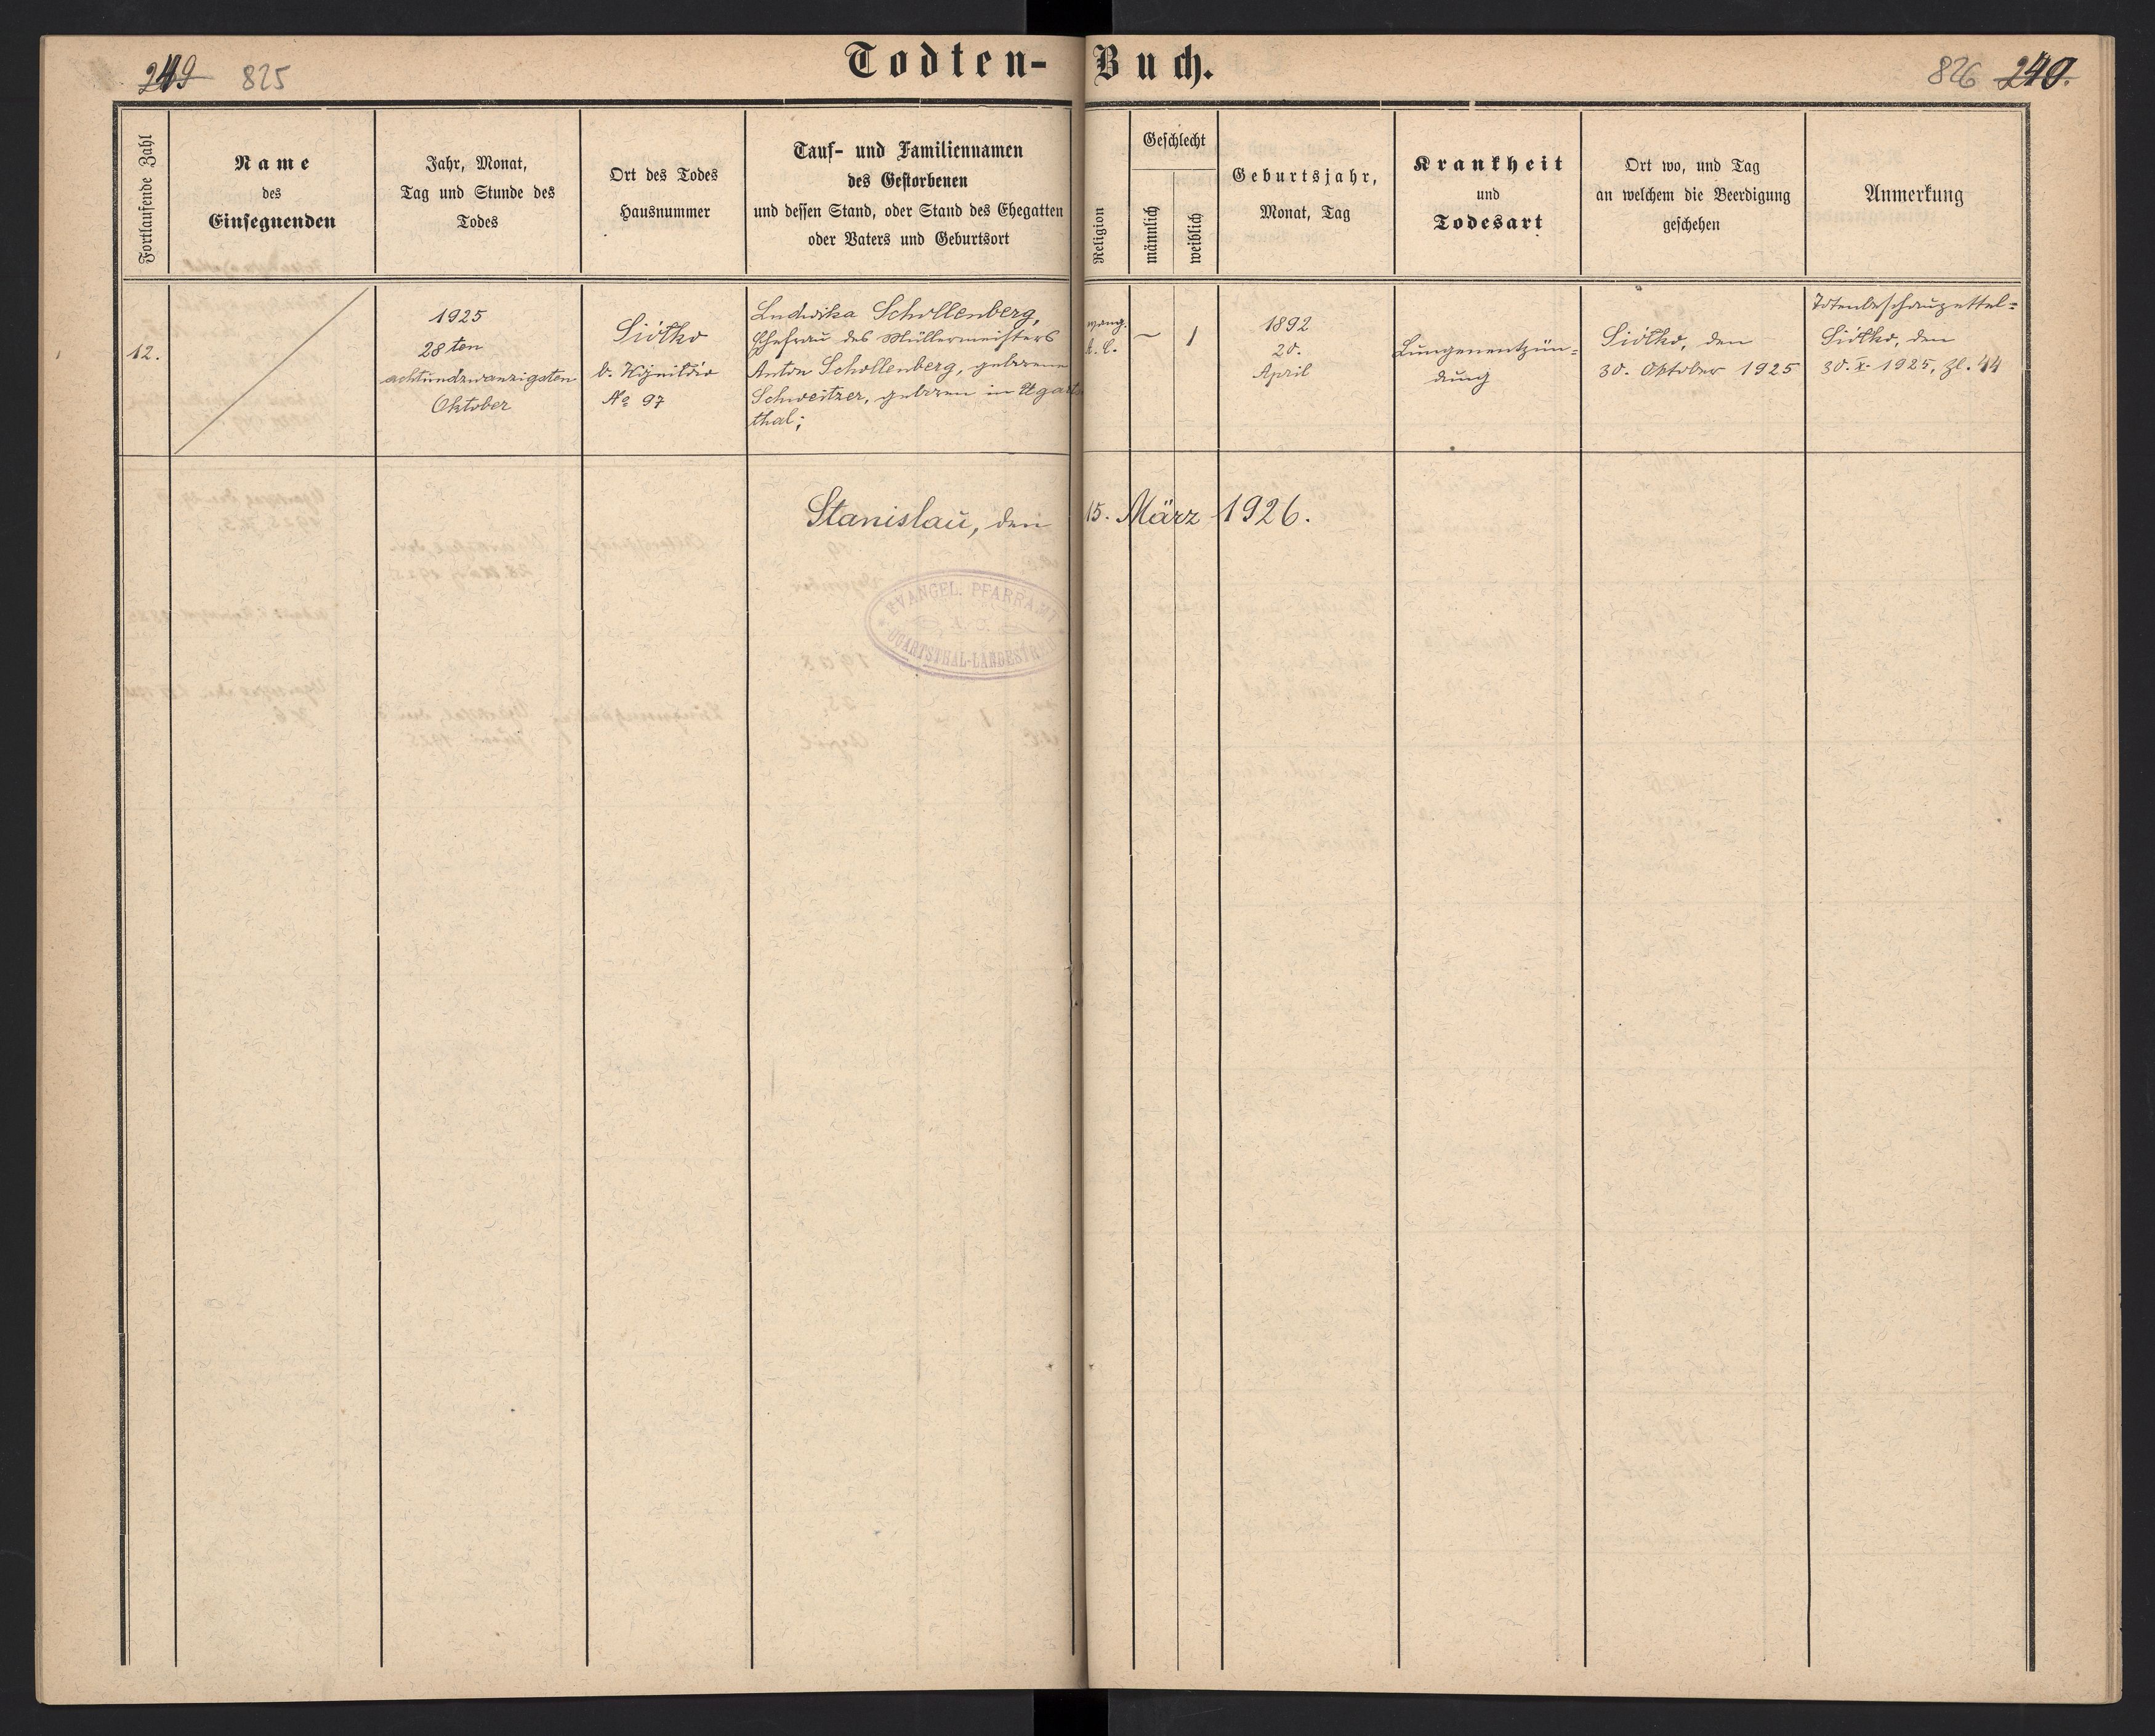 249 825
Todten-Buch.
826 240.
Fortlaufende Zahl
Name
des
Einsegnenden
Jahr, Monat,
Tag und Stunde des
Todes
Ort des Todes
Hausnummer
Tauf- und Familiennamen
des Gestorbenen
und dessen Stand, oder Stand des Ehegatten
oder Vaters und Geburtsort
Religion
Geschlecht
männlich
weiblich
Geburtsjahr,
Monat, Tag
Krankheit
und
Todesart
Ort wo, und Tag
an welchem die Beerdigung
geschehen
Anmerkung
12.
1925
28ten
achtundzwanzigsten
Oktober
Siółko
No 97
Ludwika Schollenberg,
Ehefrau des Müllermeisters
Anton Schollenberg, geborene
Schweitzer, geboren in Ugarts
thal;
evang.
A. C.
1
1892
20.
April
Lungenentzün=
dung
Siółko, den
30. Oktober 1925
Totenbeschauzettel=
Siółko, den
30. X. 1925, Zl. 44
Stanislau, den 15. März 1926.
EVANGEL. PFARRAMT
A. C.
UGARTSTHAL-LANDESTREU